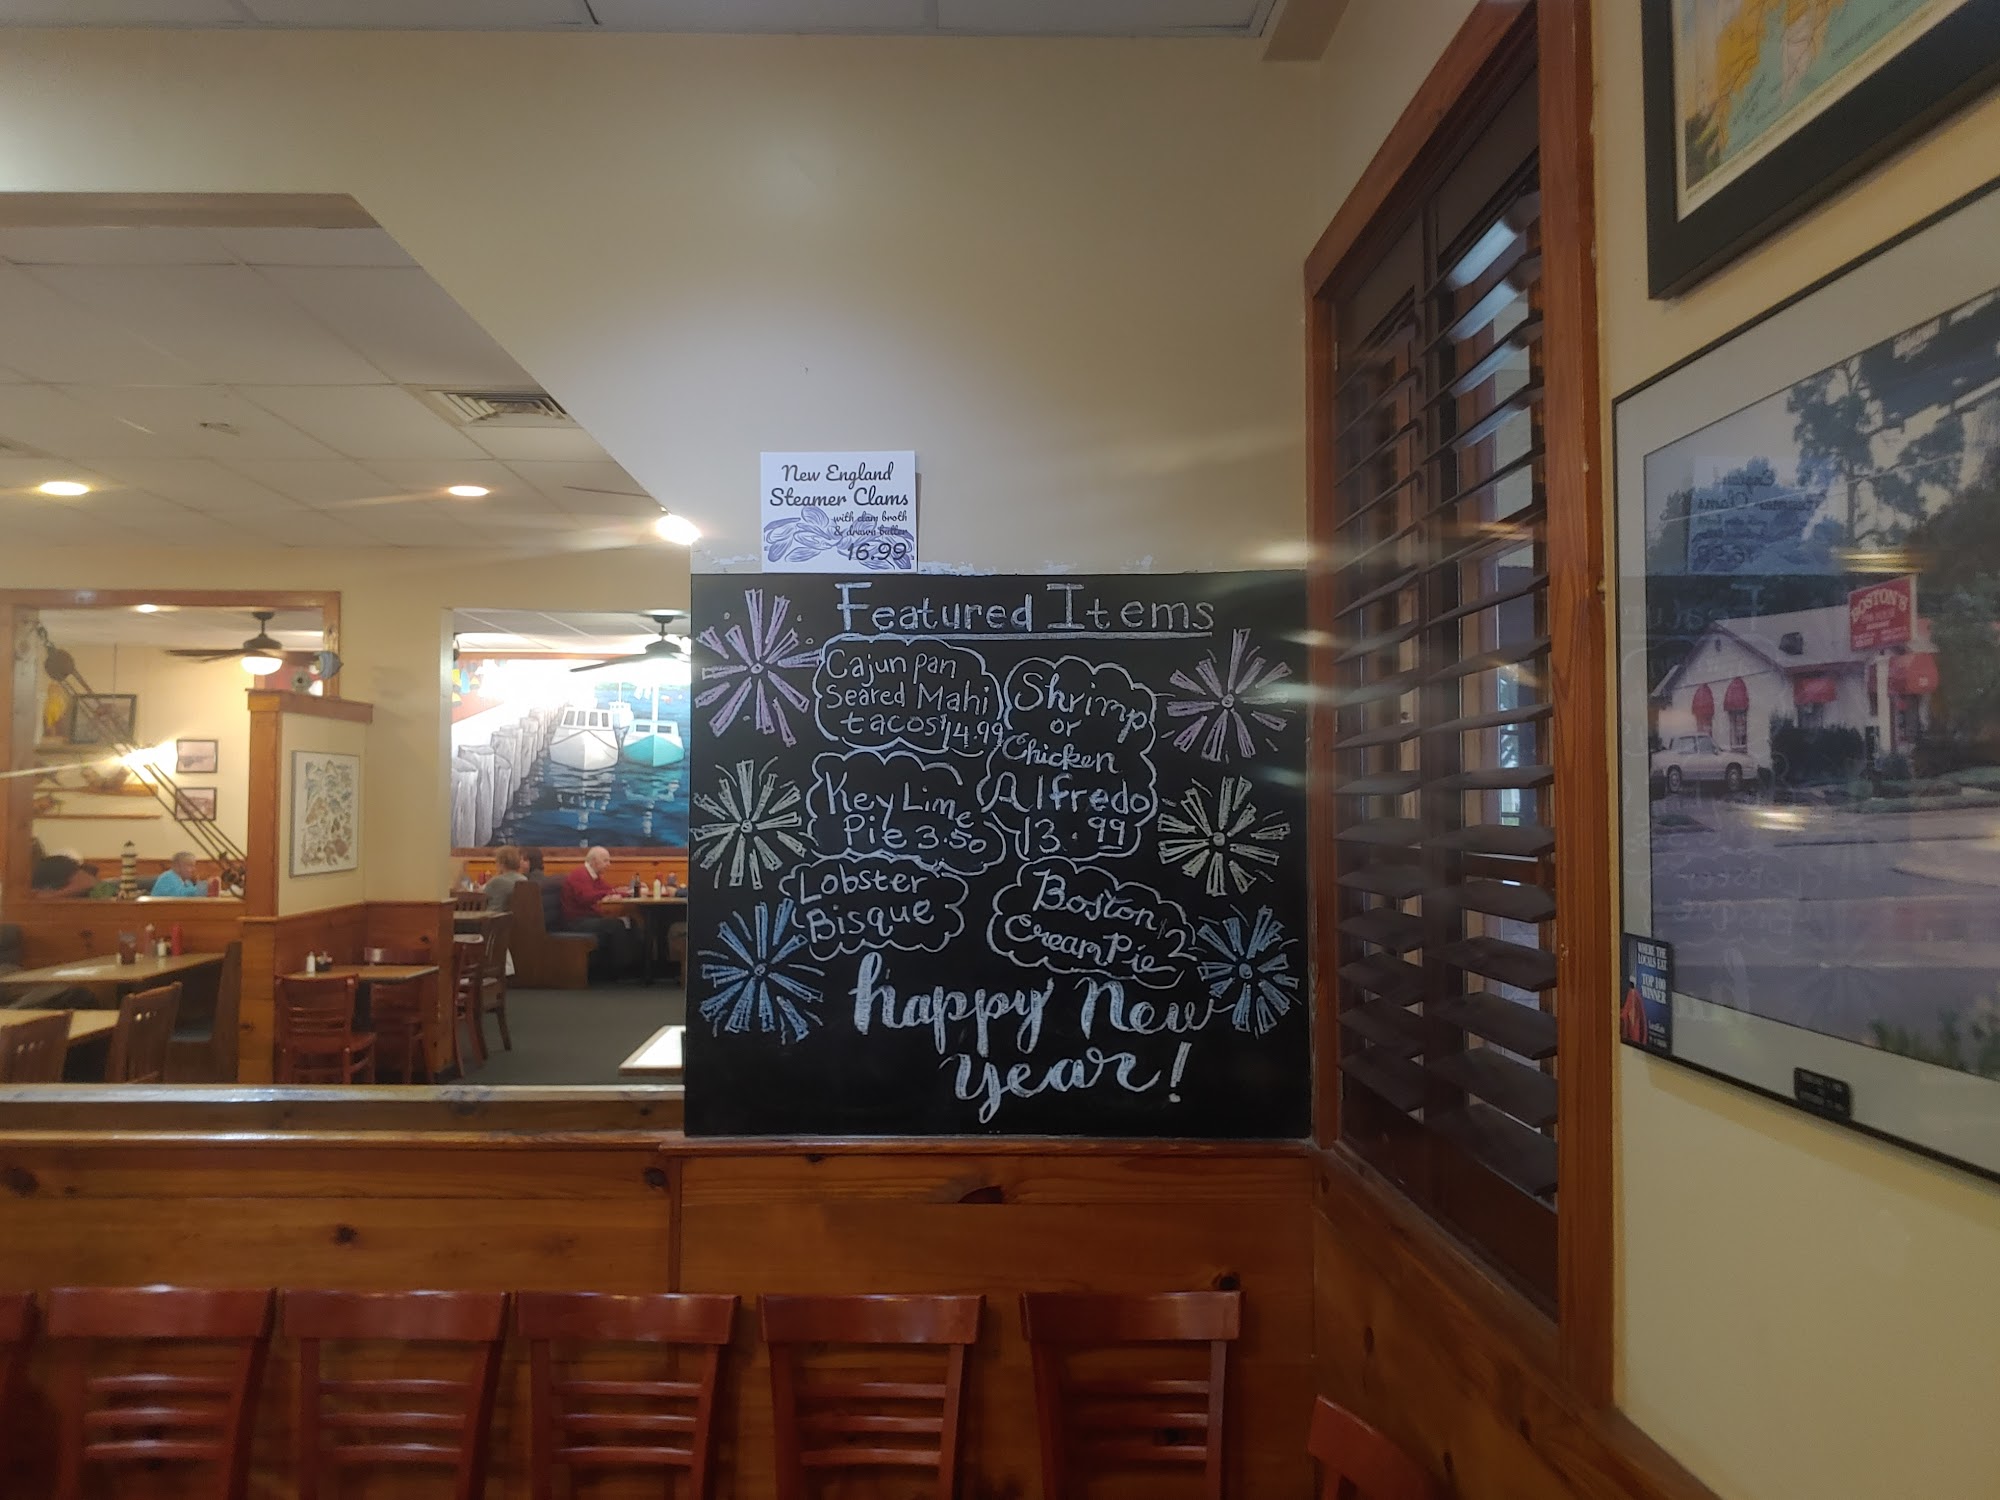 New England
Steamer Clams
with clam broth
& drawn butter
16.99
Featured Items
Cajun pan
Seared Mahi
tacos $14.99
Shrimp
or
Chicken
Alfredo
13.99
Key Lime
Pie 3.50
Lobster
Bisque
Boston
Cream Pie 2
happy New
year!
BOSTON'S
WHERE THE
LOCALS EAT
TOP 100
WINNER